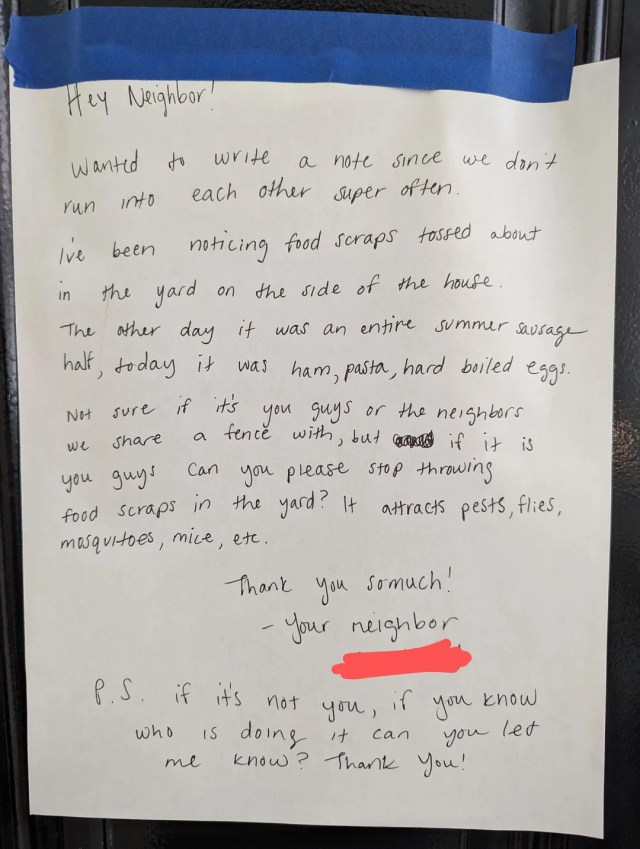 Hey Neighbor!
Wanted to write a note since we don't
run into each other super often.
I've been noticing food scraps tossed about
in the yard on the side of the house.
The other day it was an entire summer sausage
half, today it was ham, pasta, hard boiled eggs.
Not sure if it's you guys or the neighbors
we share a fence with, but if it is
you guys can you please stop throwing
food scraps in the yard? It attracts pests, flies,
mosquitoes, mice, etc.
Thank you somuch!
- Your neighbor
P.S. if it's not you, if you know
who is doing it can you let
me know? Thank You!